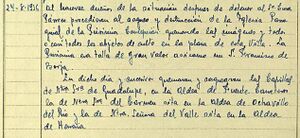 24-8-1936 al hacerse dueños de la situación despues de detener al Sr. Cura
Párroco procedieron al saqueo y destrucción de la Iglesia Parro
quial de la Purísima Concepción quemando las imágenes y todo
s con todos los objetos de culto en la plaza de esta Villa. La
Purísima era talla de gran valor asi como un S. Francisco de
Borja.
En dicho dia y quemaron y saquearon las Capillas
de Ntra Sra de Guadalupe, en la Aldea de Fuente Carreteros
la de Ntra Sra del Carmen sita en la Aldea de Ochavillo
del Rio y la de Ntra Señora del Valle sita en la Aldea
de